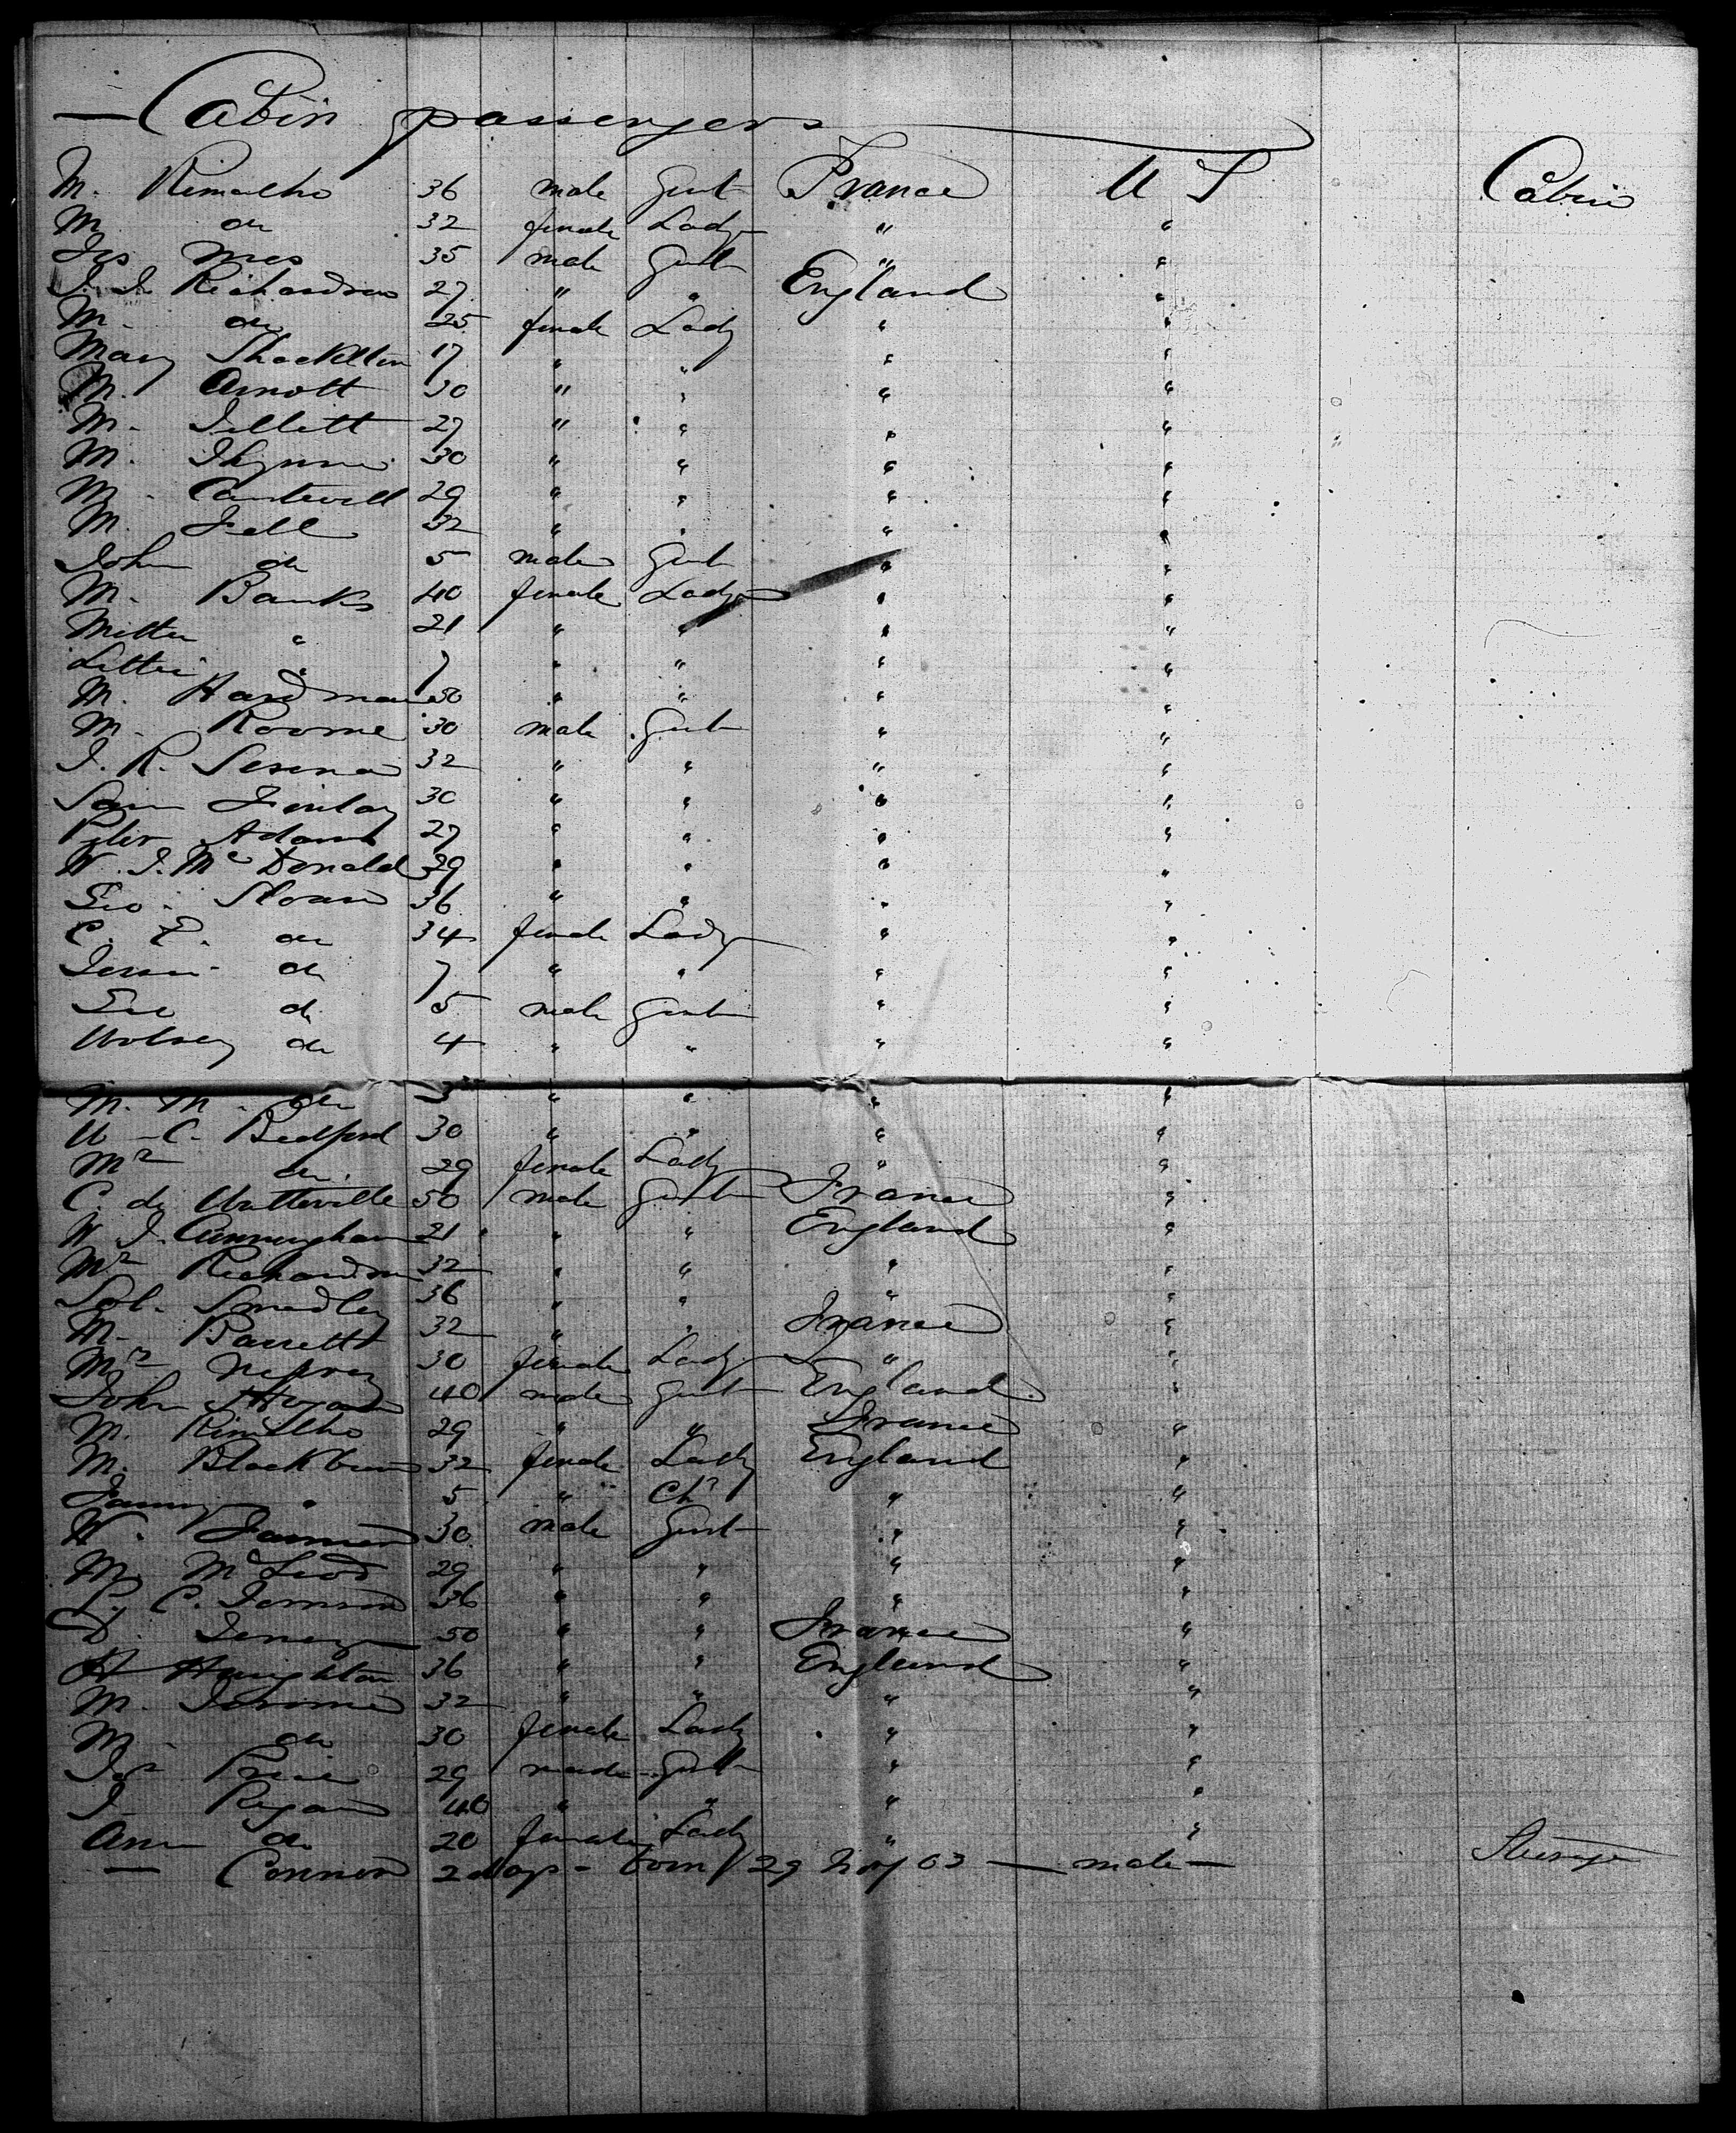 Cabin passengers
M. Rimalho 36 male Gent France U S Cabin
M do 32 female Lady " "
Jas 35 male Gent " "
J. J. Richardson 27 " " England "
M. do 25 female Lady " "
Mary Shackleton 17 " " " "
M. Arnott 30 " " " "
M. Jellett 27 " " " "
M. 30 " " " "
M. Cantwell 29 " " " "
M. Fell 32 " " " "
John do 5 male Gent " "
M. Banks 40 female Lady " "
" 21 " " " "
" 7 " " " "
M. Hardman 50 " " " "
M. Roome 30 male Gent " "
J. R. 32 " " " "
Sam Finlay 30 " " " "
Peter Adams 27 " " " "
W. J. Mc Donald 29 " " " "
Geo. Sloan 36 " " " "
C. E. do 34 female Lady " "
Jessie do 7 " " " "
Geo do 5 male Gent " "
do 4 " " " "
M. M. do 3 " " " "
C. Bedford 30 " " " "
Mrs do 29 female Lady " "
C. de Watteville 50 male Gent France "
W J. Cunningham 21 " " England "
Mr Richardson 32 " " " "
Sol. Smedley 36 " " " "
M. Barrett 32 " " France "
Mrs 30 female Lady " "
John Hogan 40 male Gent England "
M. Rimalho 29 " " France "
M. Blackburn 32 female Lady England "
Fanny " 5 " Chd " "
W. 30 male Gent " "
M. McLeod 29 " " " "
C. 36 " " " "
D. 50 " " France "
H Haughton 36 " " England "
M. Jerome 32 " " " "
M. do 30 female Lady " "
Jas Price 29 male Gent " "
J. Regan 40 " " " "
Ann do 20 female Lady " "
— Connor 2 days - born 29 Nov 03 — male — Steerage